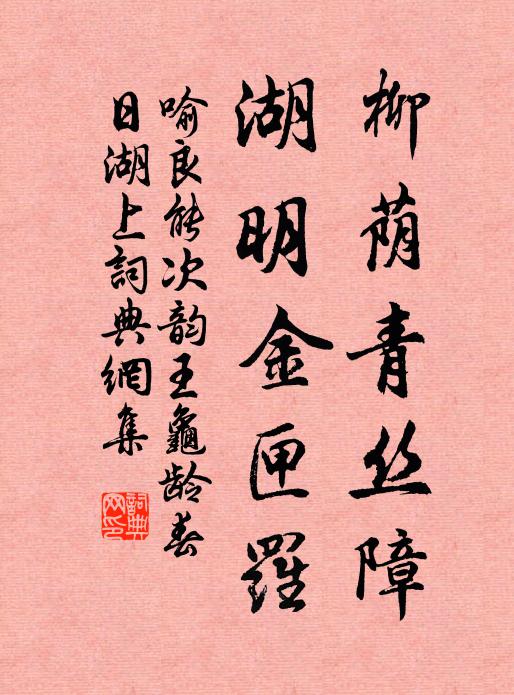 柳荫青丝障
湖明金匣羅
喻良能次韵王龜龄春
日湖上詞典網集
詞典网印